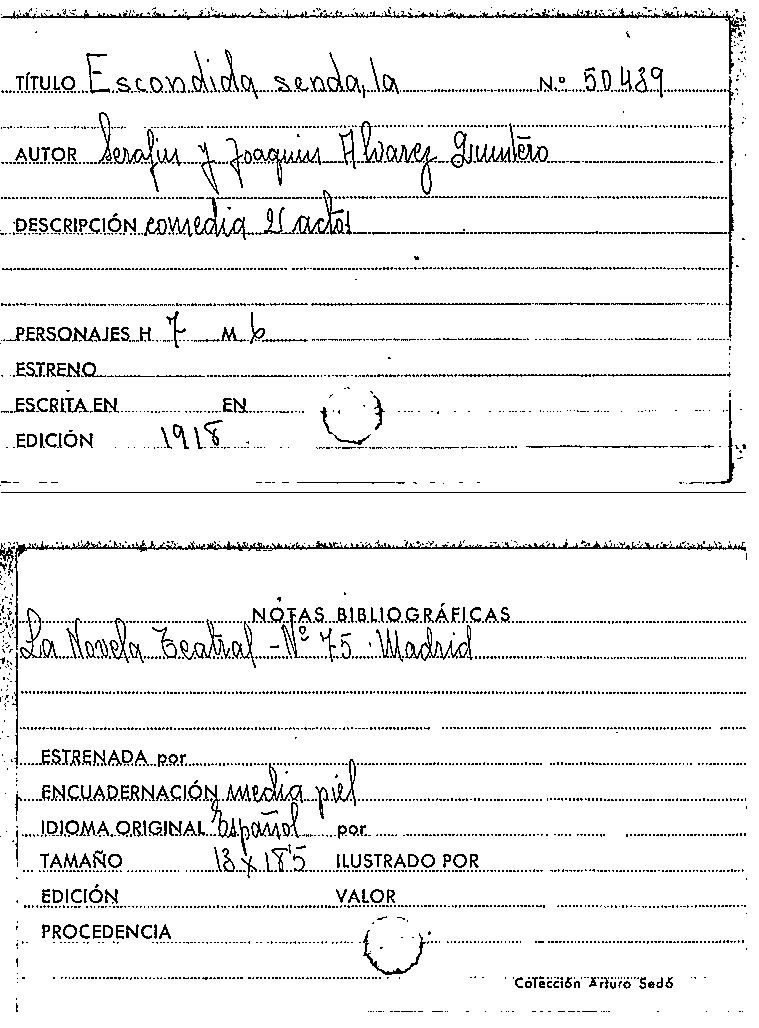 TÍTULO Escondida senda, la N.º 50439
AUTOR Serafín y Joaquín Alvarez Quintero
DESCRIPCIÓN comedia 2 actos
PERSONAJES H 7 M 6
ESTRENO
ESCRITA EN EN
EDICIÓN 1918
NOTAS BIBLIOGRÁFICAS
La Novela Teatral - Nº 75 · Madrid
ESTRENADA por
ENCUADERNACIÓN media piel
IDIOMA ORIGINAL Español por
TAMAÑO 13 x 18'5 ILUSTRADO POR
EDICIÓN VALOR
PROCEDENCIA
Colección Arturo Sedó